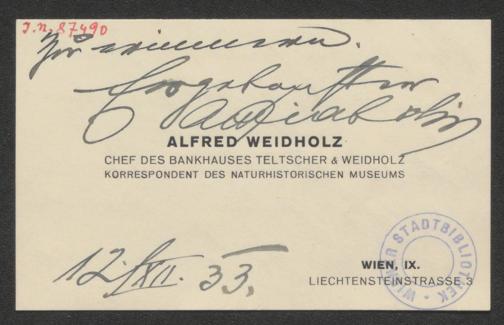 J.N. 87490
Zur Erinnerung.
ALFRED WEIDHOLZ
CHEF DES BANKHAUSES TELTSCHER & WEIDHOLZ
KORRESPONDENT DES NATURHISTORISCHEN MUSEUMS
12./XII. 33.
WIEN, IX.
LIECHTENSTEINSTRASSE 3
WIENER STADTBIBLIOTHEK